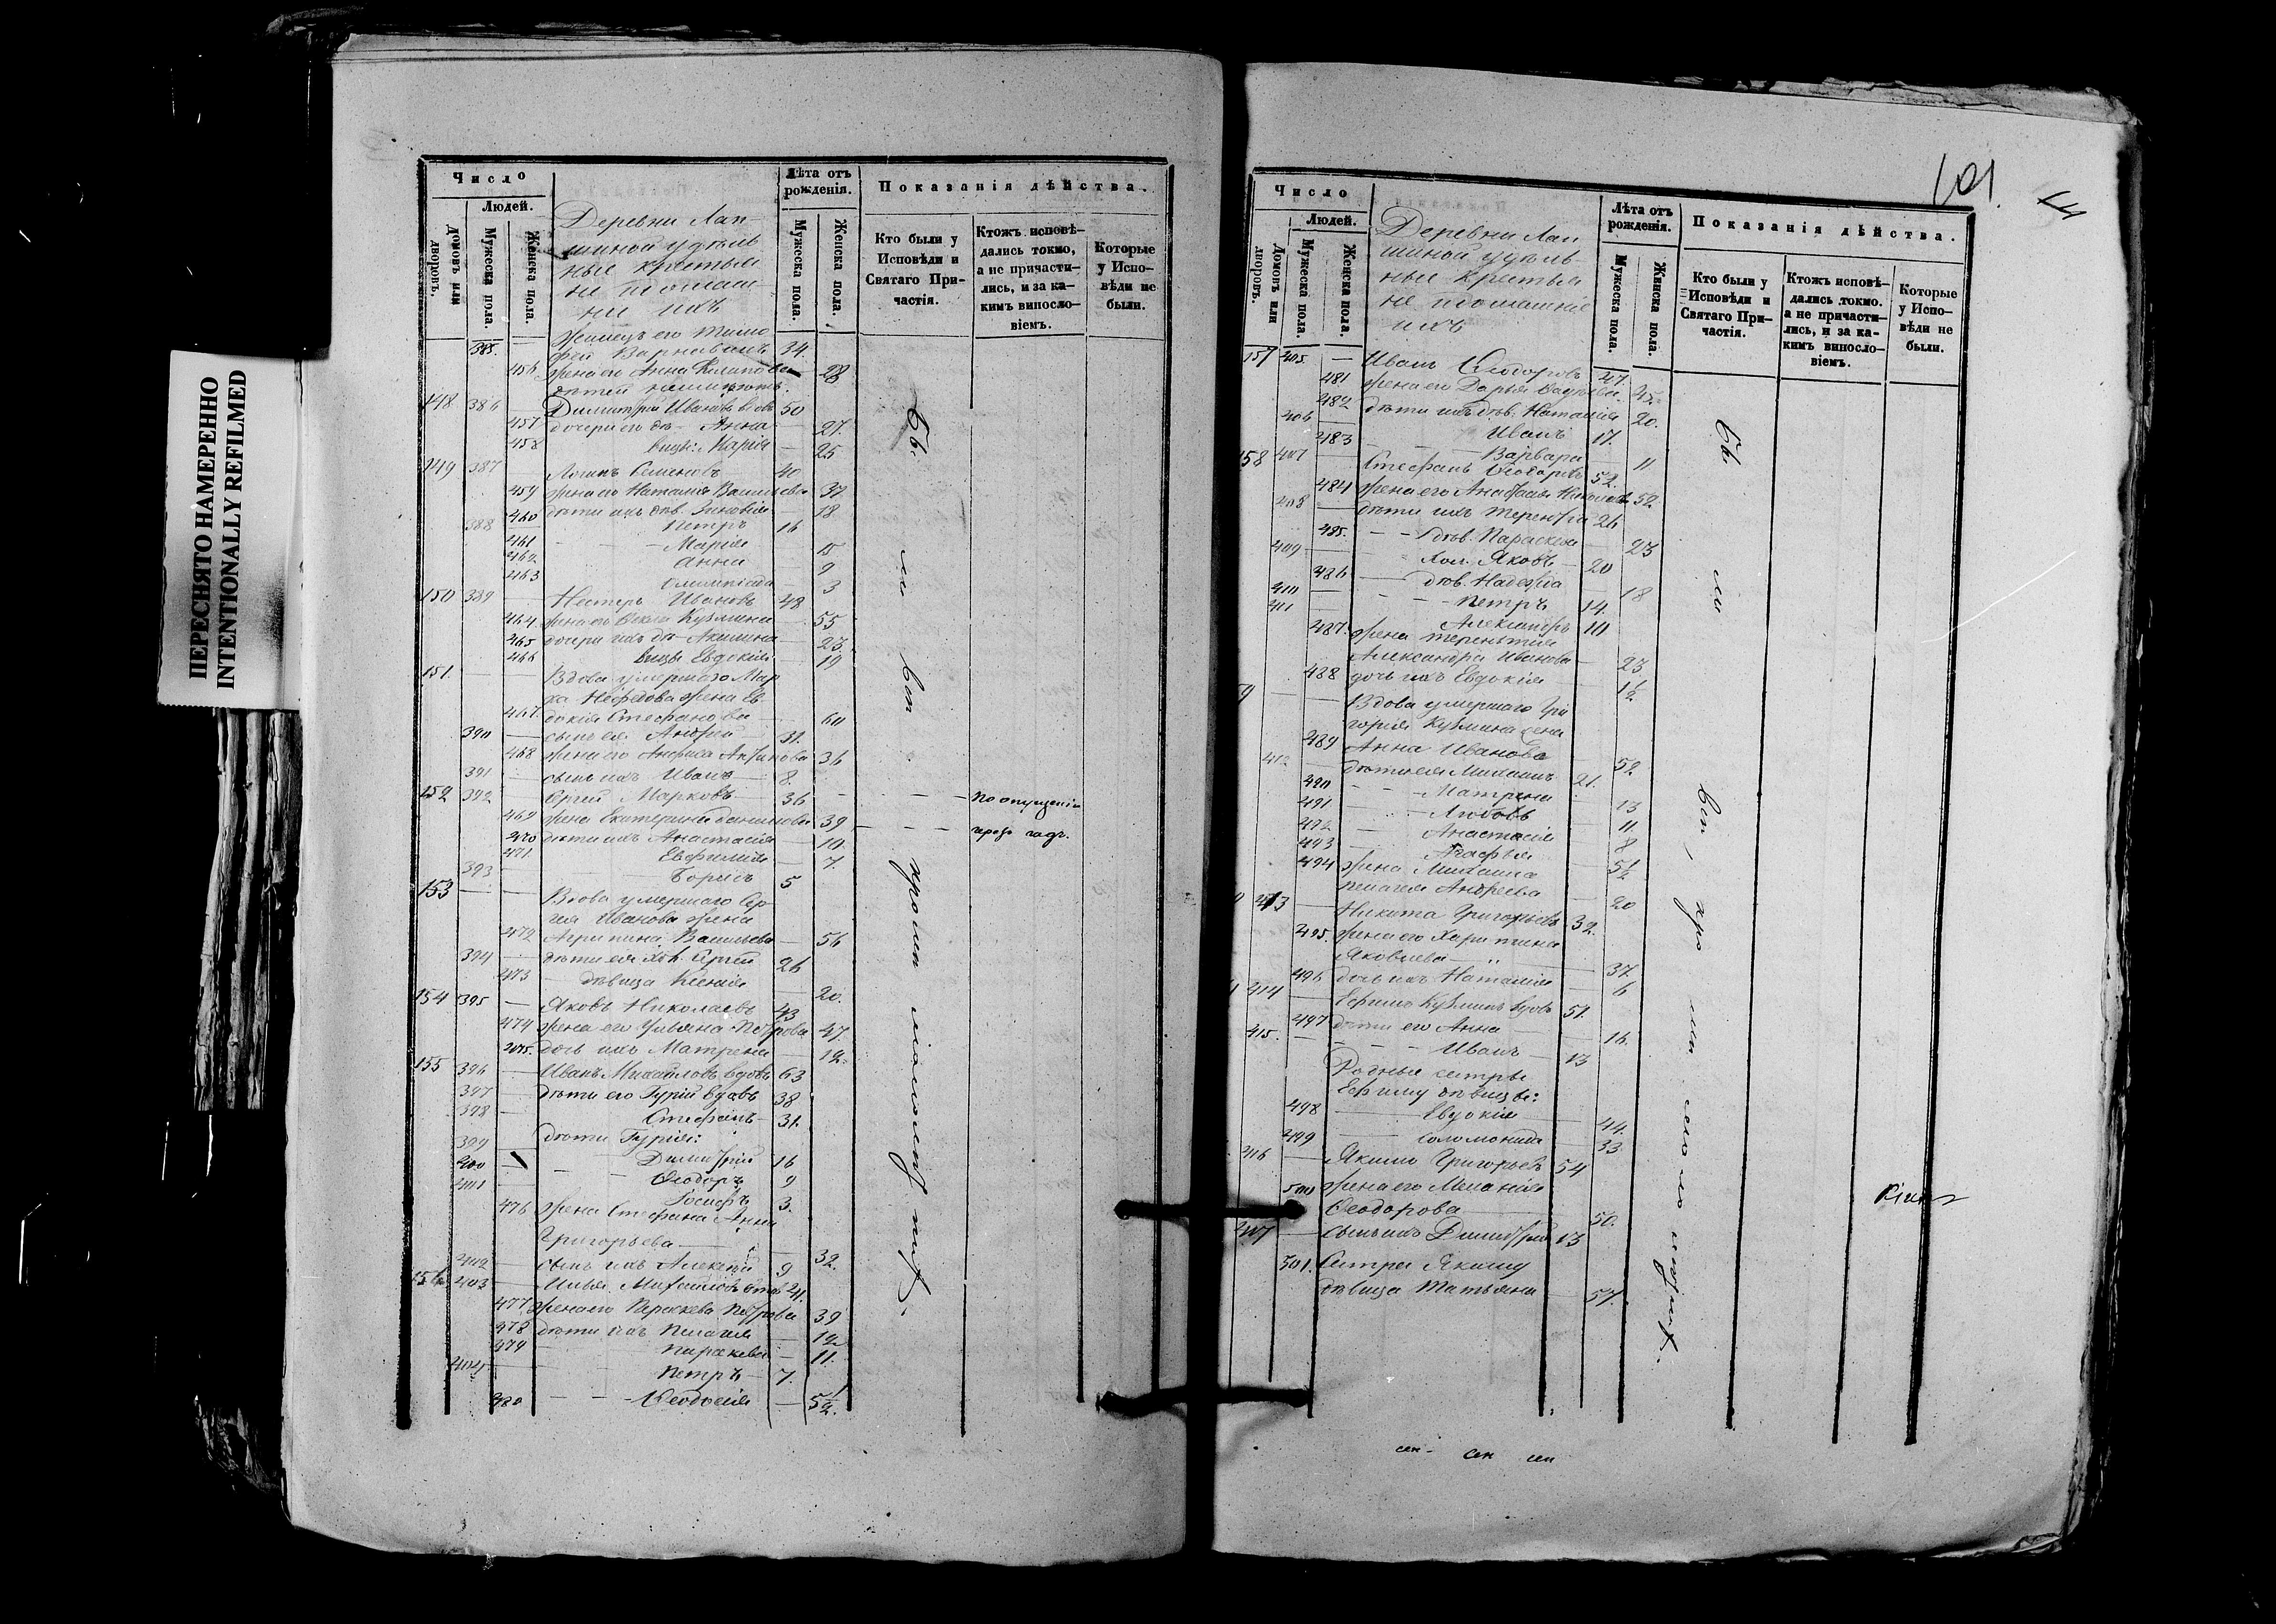 ПЕРЕСНЯТО НАМЕРЕННО
INTENTIONALLY REFILMED
Число
Людей.
Домовъ или дворовъ.
Мужеска пола.
Женска пола.
Деревни Лап
шиной удѣль
ные крестья
не
ихъ
Лѣта отъ рожденія.
Мужеска пола.
Женска пола.
Показанія дѣйства.
Кто были у
Исповѣди и
Святаго При-
частія.
Ктожъ исповѣ-
дались токмо,
а не причасти-
лись, и за ка-
кимъ винносло-
віемъ.
Которые
у Испо-
вѣди не
были.
385. — 34.
456 жена его Анна — 28
148 386 Димитрій Ивановъ вдовъ 50
457 дочери его дѣ — Анна — 27.
458 вицы: Марія — 25
149 387 Логинъ Семеновъ 40
459 жена его Наталія Васильева 37.
460 дѣти ихъ дѣв. Зиновія — 18
388 — Петръ 16
461 — Марія 15
462 Анна 9
463 Олимпіада 3
150 389 Нестеръ Ивановъ 48
464. жена его Ѳекла Кузмина 55
465 дочери ихъ дѣ — Акилина 23
466 вицы Евдокія — 19
151. Вдова умершаго Мар
ка Нефедова жена Ев
467. докія Стефанова 60
390 — сынъ ея Андрей 31.
468 жена его Анфиса 36
391 сынъ ихъ Иванъ 8.
152 392 — Сергей Марковъ 36 — — — По опущенію
469 жена Екатерина Данилова 39 — — —
470 дѣти ихъ Анастасія — 10.
471 Евфимія — 7.
393 Борисъ 5
153 — — Вдова умершаго Сер
гея Иванова жена
472 Агрипина Васильева — 56
394 — дѣти ея хол. Сергей 26
473 — дѣвица Ксенія — 20.
154 395 — Яковъ Николаевъ 43
474 жена его Ульяна Петрова 47.
475. дочь ихъ Матрена — 12.
155 396 — Иванъ Михайловъ вдовъ 63
397 — дѣти его Гурій вдовъ 38
398 — Стефанъ — 31.
дѣти Гурія:
399 — Димитрій 16
400 — Ѳеодоръ 9
401 — Іосифъ 3.
476 жена Стефана Анна
Григорьева — 32.
402 — сынъ ихъ Алексѣй 9
156 403 — Илья Михайловъ 41.
477 жена его Параскева Петрова 39
478 дѣти ихъ Пелагея — 12
479 Параскева — 11.
404 — Петръ — 7.
480 — — Ѳеодосія — 5½.
Бы ли вси кромѣ
101.
Число
Людей.
Домовъ или дворовъ.
Мужеска пола.
Женска пола.
Деревни Лап
шиной удѣль
ные крестья
не
ихъ
Лѣта отъ
рожденія.
Мужеска пола.
Женска пола.
Показанія дѣйства.
Кто были у
Исповѣди и
Святаго При-
частія.
Ктожъ исповѣ-
дались токмо.
а не причасти-
лись, и за ка-
кимъ винносло-
віемъ.
Которые
у Испо-
вѣди не
были.
157 405. — Иванъ Ѳеодоровъ 47.
481 жена его Дарья 45.
482 дѣти ихъ дѣв. Наталія 20.
406 — Иванъ 17.
483 — — Варвара — 11
158 407 Стефанъ Ѳеодоровъ 52.
484 жена его 52
408 — дѣти ихъ Терентій 26
485. — — дѣв. Параскева 23
409 — хол. Яковъ — 20
486 — дѣв. Надежда 18
410 — — Петръ 14.
411 — Александръ 10
487. жена Терентія
Александра Иванова — 23
488 дочь ихъ Евдокія 1½
9 — — Вдова умершаго Гри
горія Кузмина жена
489 Анна Иванова 52
412 — дѣти ея Михаилъ 21.
490 — — Матрена 13
491 — Любовь 11
492 — Анастасія 8
493 — Агафья 5½
494 жена Михаила
Пелагея Андреева 20
413 Никита Григорьевъ 32.
495. жена его Харитина
Яковлева — 37.
496 дочь ихъ Наталія 6
414 — Ефимъ Кузминъ вдовъ 51.
497 дѣти его Анна — 16.
415. — — — Иванъ — 13
Родныя сестры
Ефиму дѣвицы:
498 — Евдокія 44.
499 — Соломонида 33
416 — Якимъ Григорьевъ 54
500 жена его Меланія
Ѳеодорова — 50.
417 — сынъ ихъ Димитрій 13
501. Сестра Якиму
дѣвица Татьяна 57.
Бы ли вси, кро мѣ
сен. сен сен